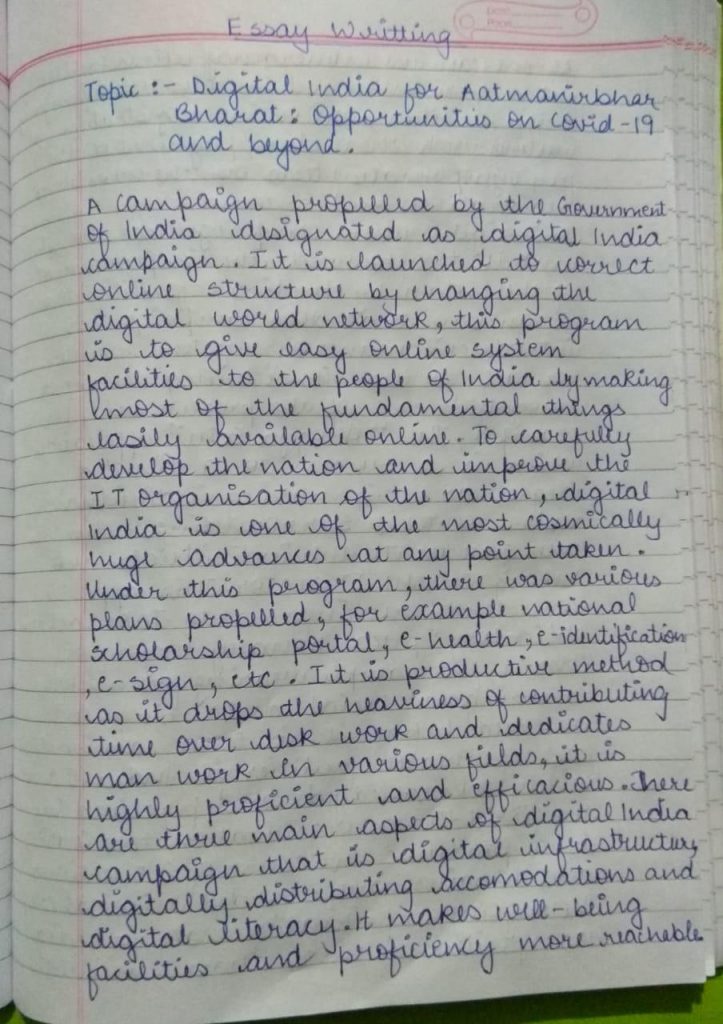 Essay Writting
Topic :- Digital India for Aatmanirbhar
Bharat : Opportunities on Covid-19
and beyond.
A campaign propelled by the Government
of India designated as digital India
campaign. It is launched to correct
online structure by changing the
digital world network, this program
is to give easy online system
facilities to the people of India by making
most of the fundamental things
easily available online. To carefully
develop the nation and improve the
IT organisation of the nation, digital
India is one of the most cosmically
huge advances at any point taken.
Under this program, there was various
plans propelled, for example national
scholarship portal, e-health, e-identification
, e-sign, etc. It is productive method
as it drops the heaviness of contributing
time over desk work and dedicates
man work in various fields, it is
highly proficient and efficacious. There
are three main aspects of digital India
campaign that is digital infrastructure,
digitally distributing accomodations and
digital literacy. It makes well-being
facilities and proficiency more reachable